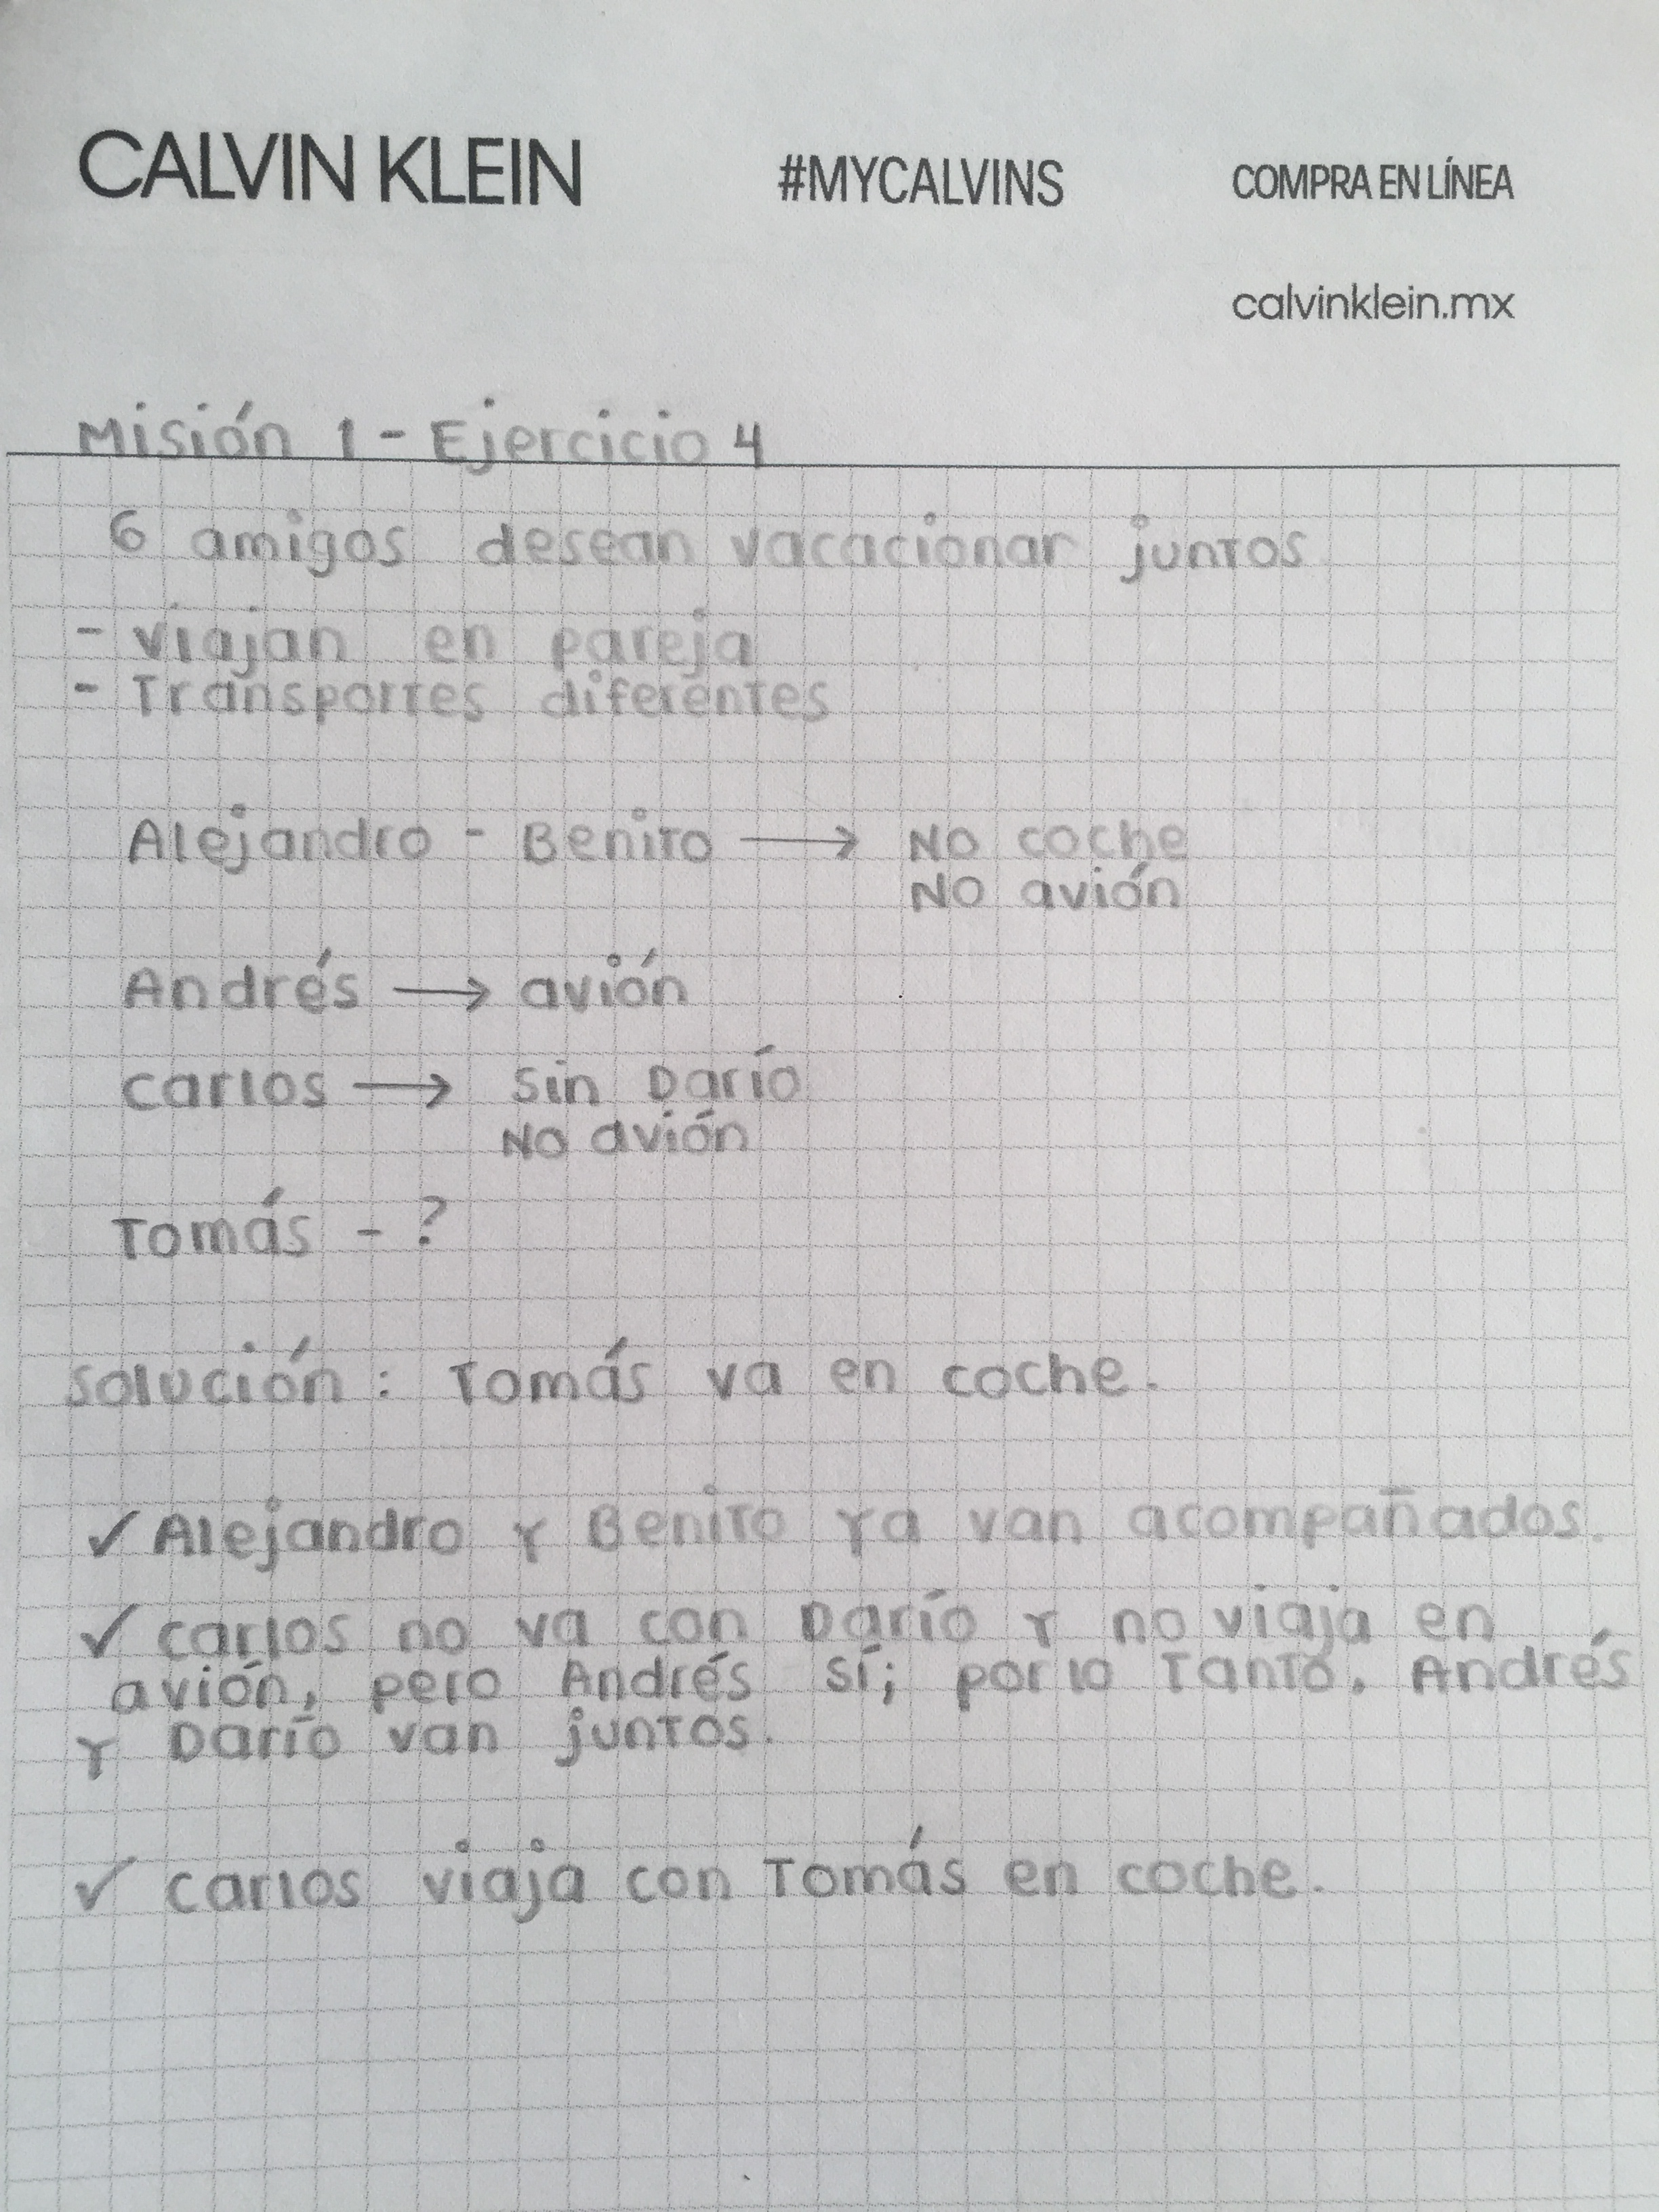 CALVIN KLEIN #MYCALVINS COMPRA EN LÍNEA
calvinklein.mx
Misión 1 - Ejercicio 4
6 amigos desean vacacionar juntos
- Viajan en pareja
- Transportes diferentes
Alejandro - Benito → No coche
No avión
Andrés → avión
Carlos → Sin Darío
No avión
Tomás - ?
Solución: Tomás va en coche.
✓ Alejandro y Benito ya van acompañados.
✓ Carlos no va con Darío y no viaja en
avión, pero Andrés sí; por lo Tanto, Andrés
y Darío van juntos.
✓ Carlos viaja con Tomás en coche.